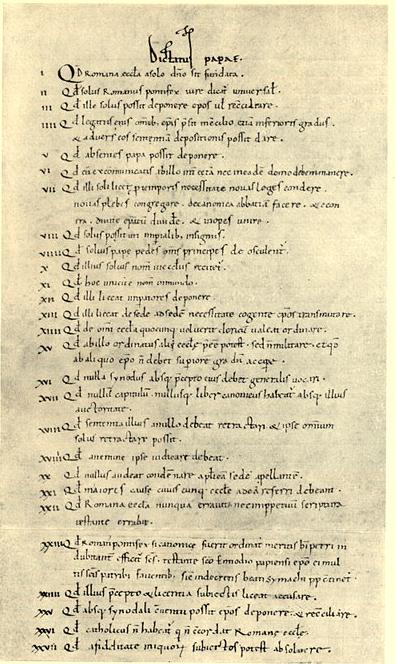 Dictatus papae.
I Qd Romana eccła a solo dn̄o sit fundata.
II Qd solus Romanus pontifex iure dicat̄ universal̄.
III Qd ille solus possit deponere epos vel reconciliare.
IIII Qd legatus eius omīb; epīs p̄sit in cōcilio etiā inferioris gradus.
& adversus eos sententiā depositionis possit dare.
V Qd absentes papa possit deponere.
VI Qd cū excōmunicatis ab illo int̄ cet̄a nec in eadē domo debem manere.
VII Qd illi soli licet p̄ temporis necessitate novas leges condere.
novas plebes congregare. de canonica abbatiā facere. & econ
tra. divite epatū divide. & inopes unire.
VIII Qd solus possit uti imp̄ialib; insigniis.
VIIII Qd solius pape pedes om̄s principes deosculent̄.
X Qd illius solius nom̄ in eccłiis recitet̄.
XI Qd hoc unicū nom̄ in mundo.
XII Qd illi liceat imperatores deponere.
XIII Qd illi liceat de sede ad sedē necessitate cogente epos transmutare.
XIIII Qd de om̄i eccła quocūq; voluerit clericū valeat ordinare.
XV Qd ab illo ordinatus alii eccłę p̄ee potest. sed n̄ militare. et qd
ab aliquo epo n̄ debet supiore gradū accipe.
XVI Qd nulla synodus absq; p̄cepto eius debet generalis vocari.
XVII Qd nullū capitulū nullusq; liber canonicus habeat̄ absq; illius
auctoritate.
XVIII Qd sententia illius a nullo debeat retractari & ipse omniū
solus retractare possit.
XVIIII Qd a nemine ipse iudicare debeat.
XX Qd nullus audeat condēnare aplicā sedē apellante.
XXI Qd maiores cause cuiuscunq; eccłę ad eā referri debeant.
XXII Qd Romana eccła nunquā erravit nec imppetuū scriptura
testante errabit.
XXIII Qd Roman' pontifex si canonice fuerit ordinat' meritis b̄i petri in
dubitant̄ efficit̄ sc̄s. testante sc̄o ennodio papiensi epo ei mul
tis sc̄is patrib; faventib; sic̄ in decretis beati symachi pp̄ continet̄.
XXIIII Qd illius p̄cepto & licentia subiectis liceat accusare.
XXV Qd absq; synodali cōventu possit epos deponere & recōciliare.
XXVI Qd catholicus n̄ habeat̄ q n̄ cōcordat Romane eccłę.
XXVII Qd a fidelitate iniquor̄ subiectos potest absolvere.